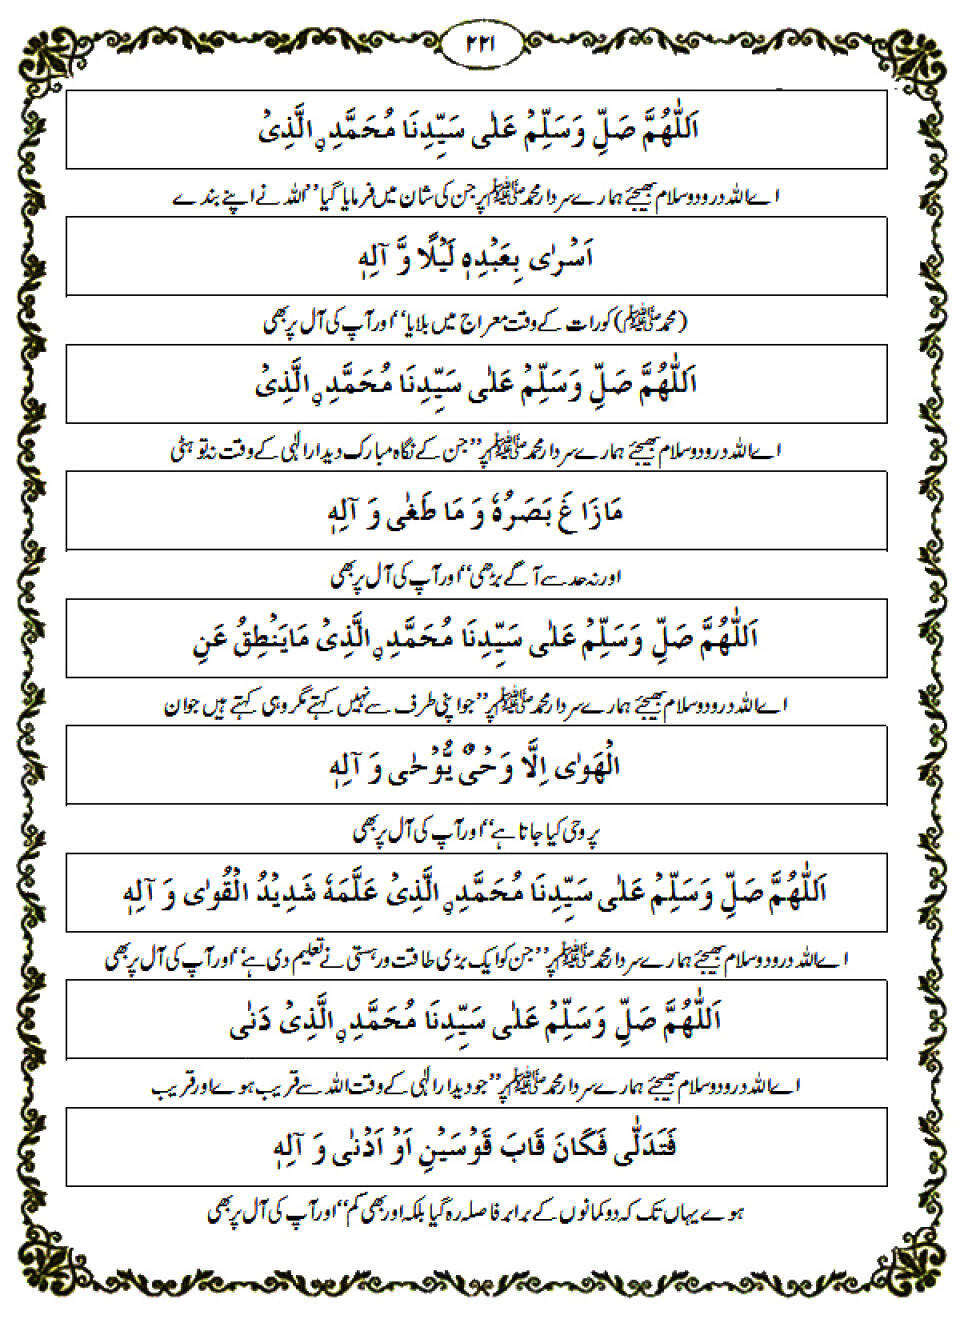 ٢٢١
اَللّٰهُمَّ صَلِّ وَسَلِّمْ عَلٰى سَيِّدِنَا مُحَمَّدِ ۣالَّذِىْ
اے اللہ درود و سلام بھیجئے ہمارے سردار محمد ﷺ پر جن کی شان میں فرمایا گیا ’’اللہ نے اپنے بندے
اَسْرٰى بِعَبْدِهٖ لَيْلًا وَّ آلِهٖ
(محمد ﷺ) کو رات کے وقت معراج میں بلایا‘‘ اور آپ کی آل پر بھی
اَللّٰهُمَّ صَلِّ وَسَلِّمْ عَلٰى سَيِّدِنَا مُحَمَّدِ ۣالَّذِىْ
اے اللہ درود و سلام بھیجئے ہمارے سردار محمد ﷺ پر ’’جن کے نگاہ مبارک دیدار الٰہی کے وقت نہ تو ہٹی
مَازَا غَ بَصَرُهٗ وَ مَا طَغٰى وَ آلِهٖ
اور نہ حد سے آگے بڑھی‘‘ اور آپ کی آل پر بھی
اَللّٰهُمَّ صَلِّ وَسَلِّمْ عَلٰى سَيِّدِنَا مُحَمَّدِ ۣالَّذِىْ مَايَنْطِقُ عَنِ
اے اللہ درود و سلام بھیجئے ہمارے سردار محمد ﷺ پر ’’جو اپنی طرف سے نہیں کہتے مگر وہی کہتے ہیں جو ان
الْهَوٰى اِلَّا وَحْىٌ يُّوْحٰى وَ آلِهٖ
پر وحی کیا جاتا ہے‘‘ اور آپ کی آل پر بھی
اَللّٰهُمَّ صَلِّ وَسَلِّمْ عَلٰى سَيِّدِنَا مُحَمَّدِ ۣالَّذِىْ عَلَّمَهٗ شَدِيْدُ الْقُوٰى وَ آلِهٖ
اے اللہ درود و سلام بھیجئے ہمارے سردار محمد ﷺ پر ’’جن کو ایک بڑی طاقت ور ہستی نے تعلیم دی ہے‘‘ اور آپ کی آل پر بھی
اَللّٰهُمَّ صَلِّ وَسَلِّمْ عَلٰى سَيِّدِنَا مُحَمَّدِ ۣالَّذِىْ دَنٰى
اے اللہ درود و سلام بھیجئے ہمارے سردار محمد ﷺ پر ’’جو دیدار الٰہی کے وقت اللہ سے قریب ہوے اور قریب
فَتَدَلّٰى فَكَانَ قَابَ قَوْسَيْنِ اَوْ اَدْنٰى وَ آلِهٖ
ہوے یہاں تک کہ دو کمانوں کے برابر فاصلہ رہ گیا بلکہ اور بھی کم‘‘ اور آپ کی آل پر بھی